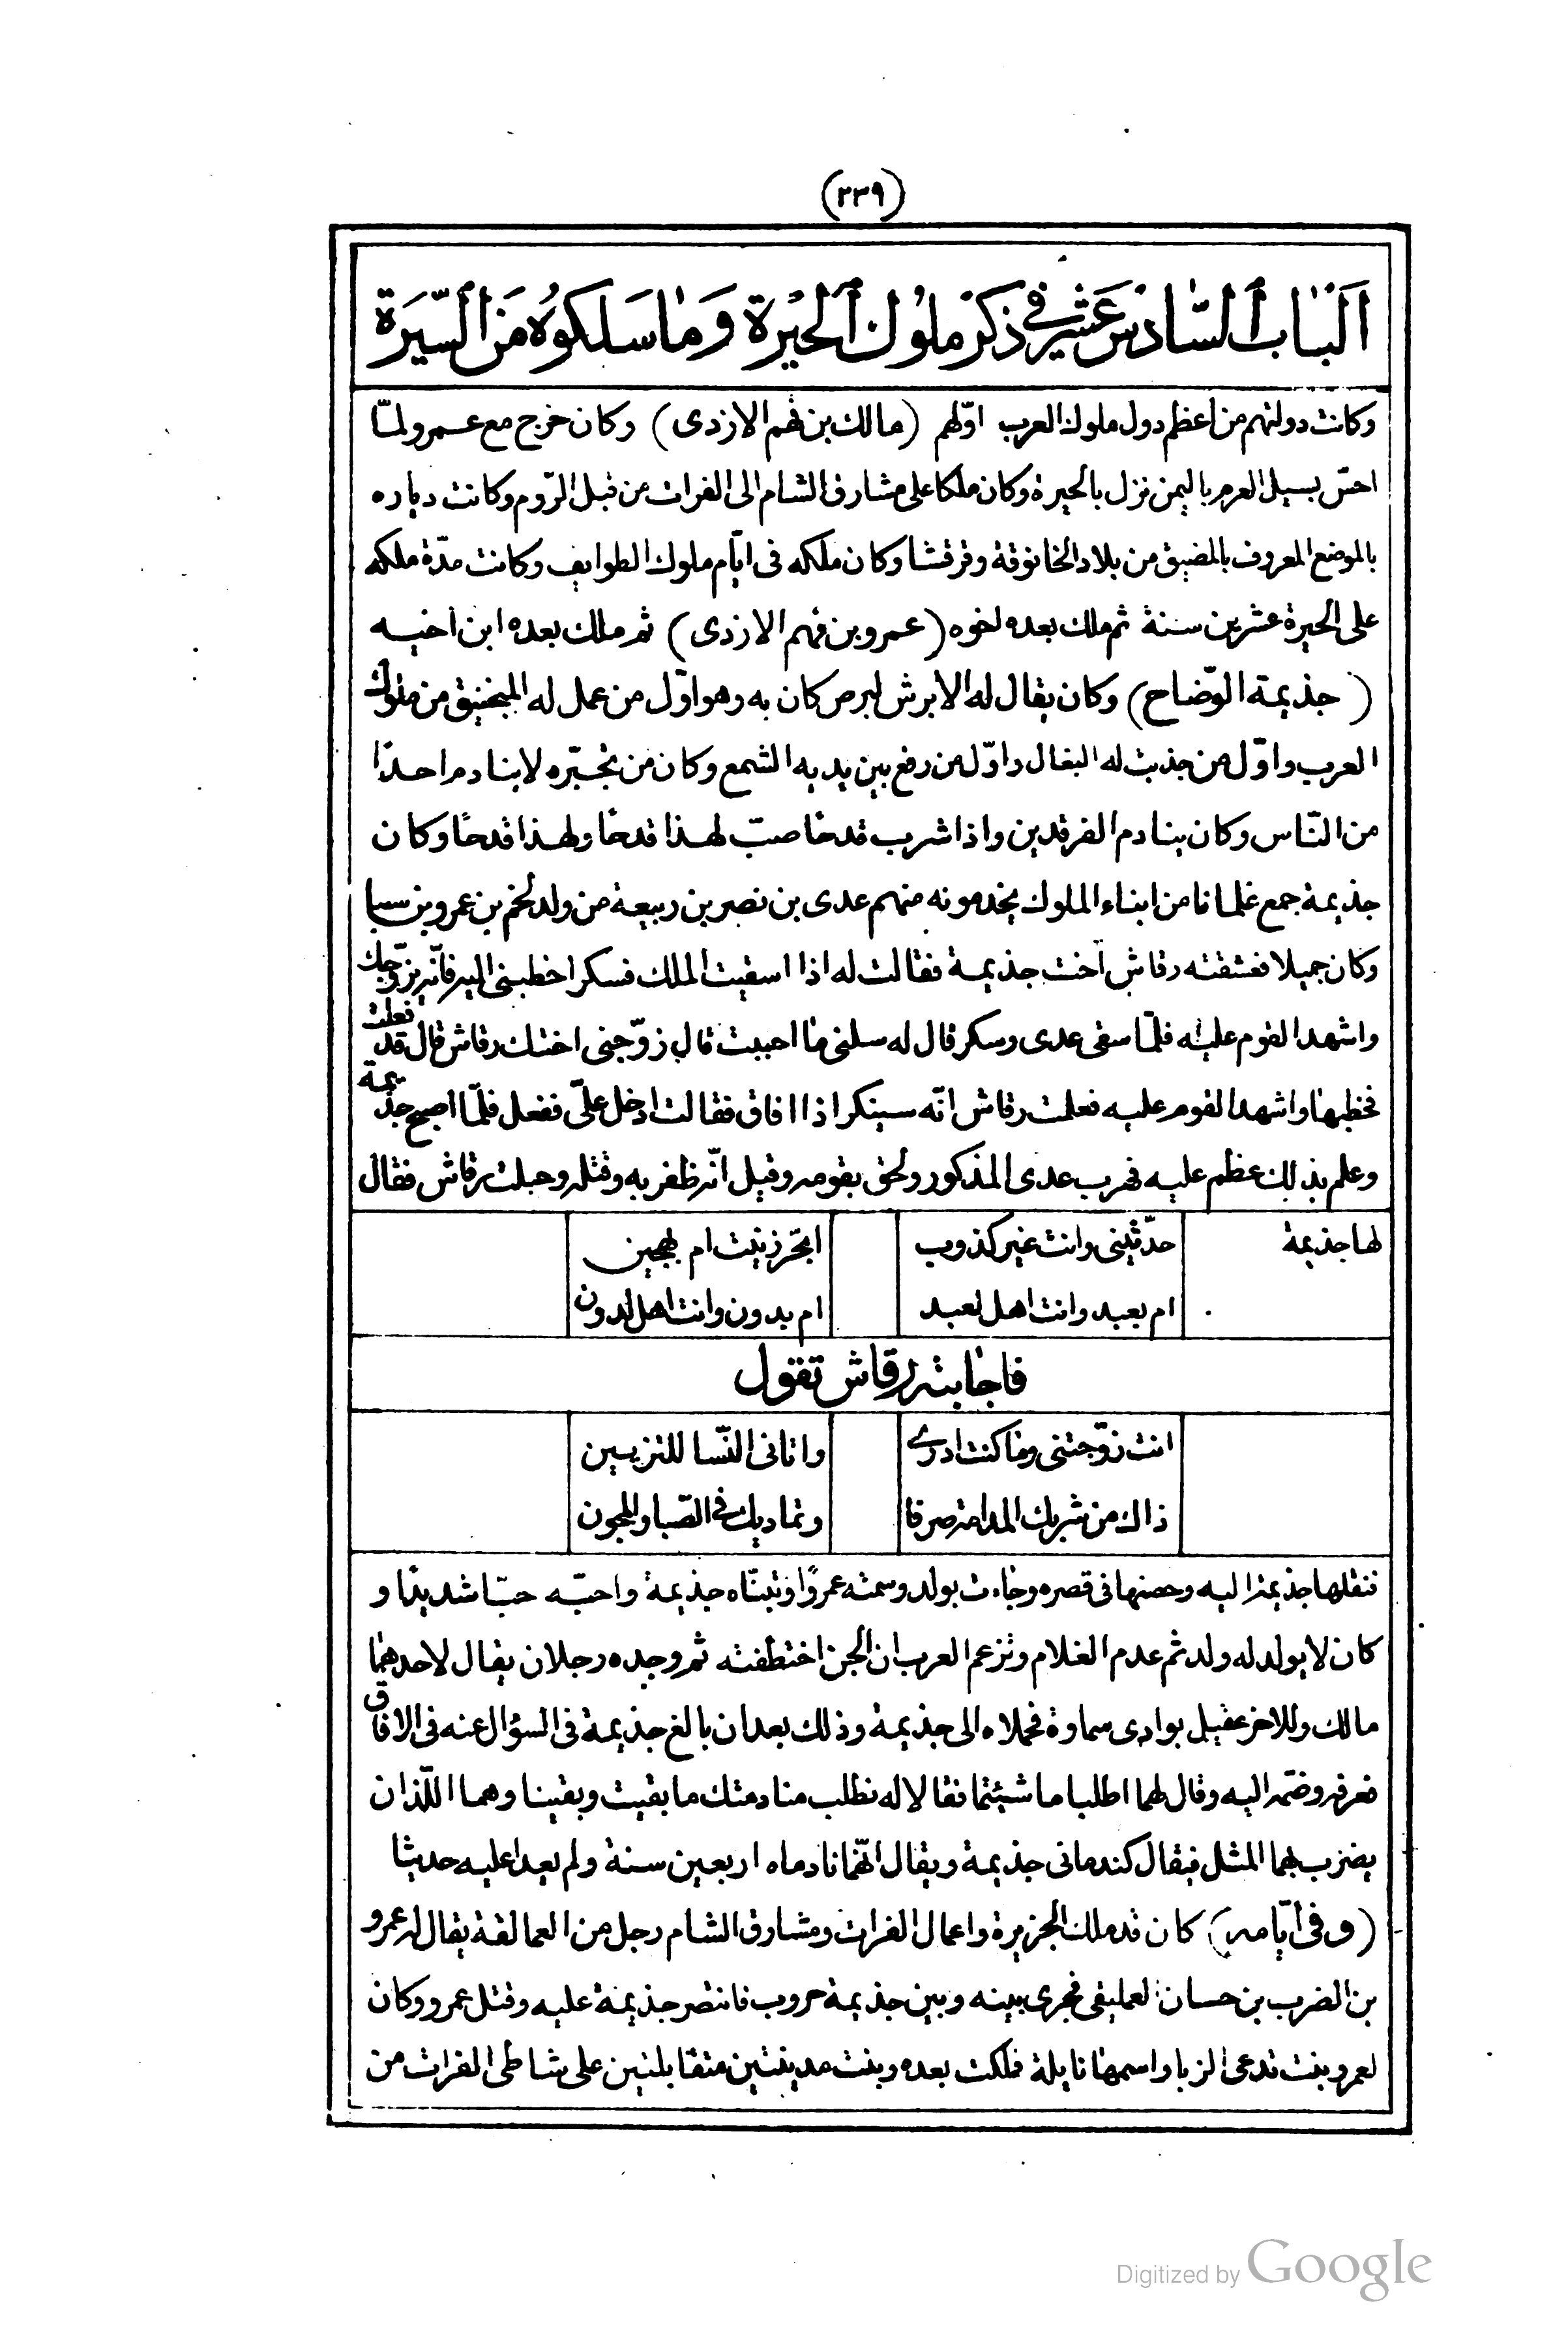 (٢٣٩)
اَلبْابُ السّٰادِسْ عَشَر فِي ذِكَرْ مُلوُك اْلحيْرَة وَمٰا سَلَكوُهُ مَن السّيَرَة
وكانت دولتهم من اعظم دول ملوك العرب اوّلهم (مالك بن فهم الازدى) وكان خرج مع عمرو لمّا
احسّ بسيل العرم باليمن نزل بالحيرة وكان ملكا على مشارف الشام الى الفرات من قبل الرّوم وكانت دياره
بالموضع المعروف بالمضيق من بلاد الخانوقة وقرقشا وكان ملكه فى ايّام ملوك الطوايف وكانت مدّة ملكه
على الحيرة عشرين سنة ثم ملك بعده اخوه (عمرو بن فهم الازدى) ثم ملك بعده ابن اخيه
(جذيمة الوّضاح) وكان يقال له الابرش لبرص كان به وهو اوّل من عمل له المنجنيق من ملوك
العرب واوّل من جذيت له البغال واوّل من رفع بين يديه الشمع وكان من تجبّره لا ينادم احدًا
من النّاس وكان ينادم الفرقدين واذا شرب قدحًا صبّ لهذا قدحًا ولهذا قدحًا وكان
جذيمة جمع غلمانا من ابناء الملوك يخدمونه منهم عدى بن نصر بن ربيعة من ولد لخم بن عمرو بن سبا
وكان جميلا فعشقته رقاش اخت جذيمة فقالت له اذا اسقيت الملك فسكر اخطبنى اليه فانّه يزوّجك
واشهد القوم عليه فلمّا سقى عدى وسكر قال له سلنى ما احببت قال زوّجنى اختك رقاش قال قد فعلت
فخطبها واشهد القوم عليه فعلمت رقاش انّه سينكر اذا افاق فقالت ادخل علىّ ففعل فلمّا اصبح جذيمة
وعلم بذلك عظم عليه فهرب عدى المذكور ولحق بقومه وقيل انّه ظفر به وقتله وحبلت رقاش فقال
لها جذيمة حدّثينى وانت غير كذوب ابحّر زنيت ام بهجين
ام بعبد وانت اهل لعبد ام بدون وانت اهل لدون
فاجابته رقاش تقول
انت زوّجتنى وما كنت ادرى واتانى النّسا للتزيين
ذاك من شربك المدامة صرفا وتماديك فى الصّبا والمجون
فنقلها جذيمة اليه وحصنها فى قصره وجاءت بولد وسمته عمروًا وتبنّاه جذيمة واحبّه حبّا شديدًا و
كان لا يولد له ولد ثم عدم الغلام وتزعم العرب ان الجن اختطفته ثم وجده رجلان يقال لاحدهما
مالك وللاخر عقيل بوادى سماوة فحملاه الى جذيمة وذلك بعد ان بالغ جذيمة فى السؤال عنه فى الافاق
فعرفه وضمّه اليه وقال لهما اطلبا ما شيئتما فقالا له نطلب منادمتك ما بقيت وبقينا وهما اللّذان
يضرب بهما المثل فيقال كندمانى جذيمة ويقال انّهما نادماه اربعين سنة ولم يعدا عليه حديثا
(وفى ايّامه) كان قد ملك الجزيرة واعمال الفرات ومشارق الشام رجل من العمالقة يقال له عمرو
بن الضرب بن حسان العمليقى فجرى بينه وبين جذيمة حروب فانتصر جذيمة عليه وقتل عمرو وكان
لعمرو بنت تدعى الزبا واسمها نايلة فملكت بعده وبنت مدينتين متقابلتين على شاطئ الفرات من
Digitized by Google